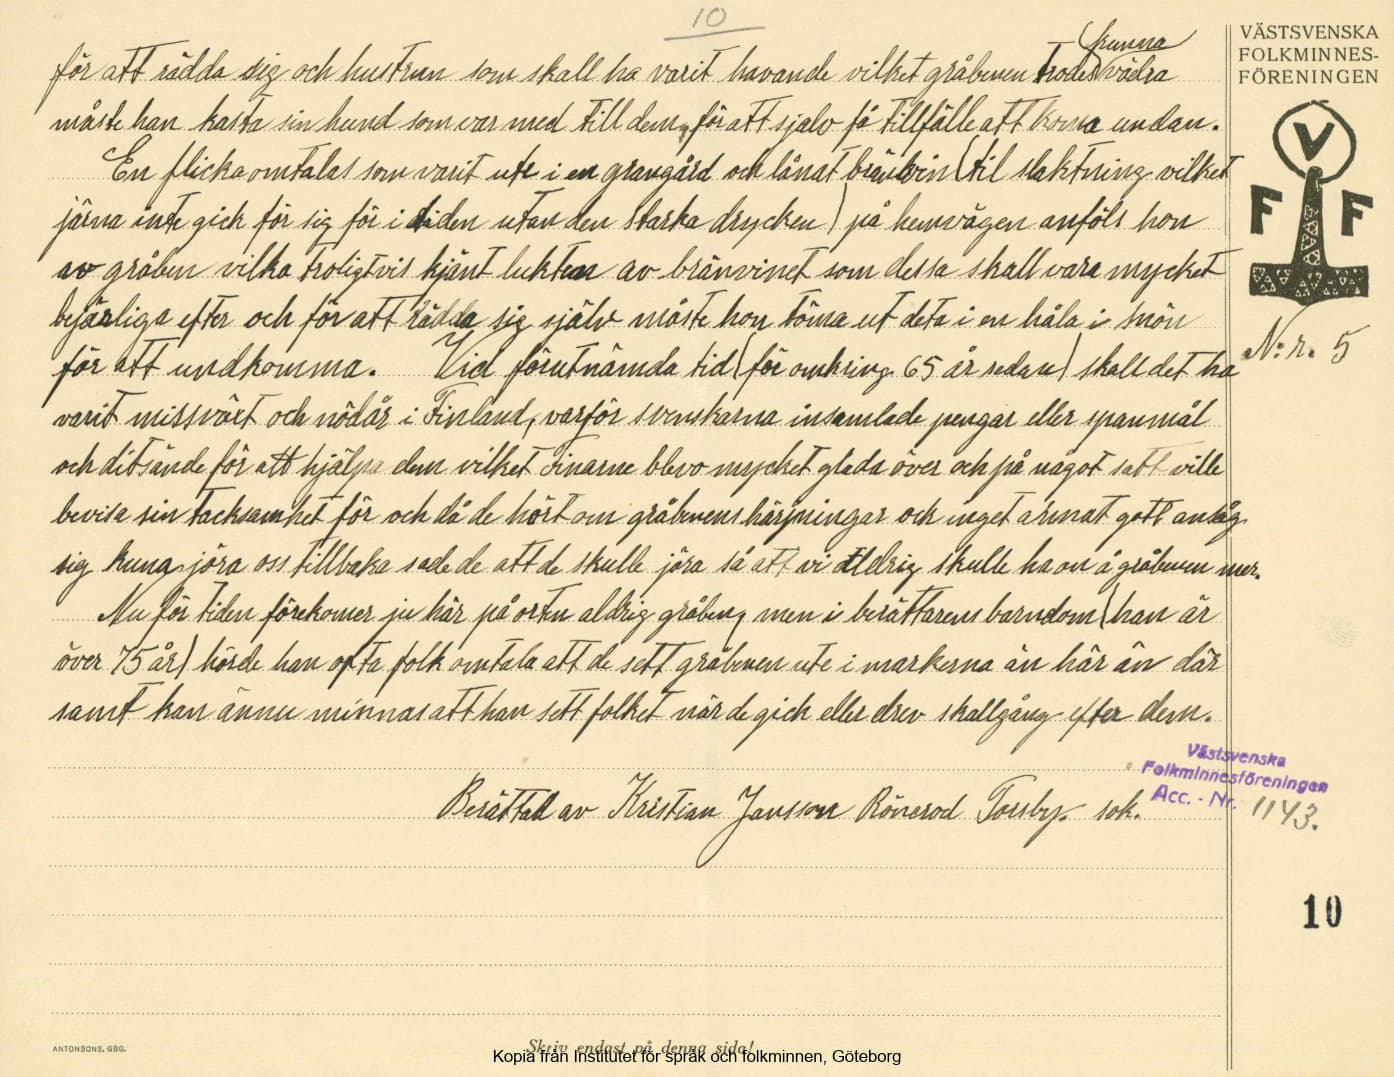 10
för att rädda sig och hustrun som skall ha varit havande vilket gråbenen trodes kunna vädra
måste han kasta sin hund som var med till dem, för att sjalv få tillfälle att koma undan.
En flicka omtalas som varit ute i en granngård och lånat bränvin (til slaktning vilket
järna inte gick för sig för i tiden utan den starka drycken) på hemvägen anföls hon
av gråben vilka troligtvis kjänt lukten av bränvinet som dessa skall vara mycket
bejärliga efter och för att rädda sig själv måste hon töma ut deta i en håla i snön
för att undkomma. Vid förutnämda tid (för omkring 65 år sedan) skall det ha
varit missväxt och nödår i Finland, varför svenskarna insamlade pengar eller spanmål
och ditsände för att hjälpa dem vilket Finarne blevo mycket glada över och på nagot satt ville
bevisa sin tacksamhet för och då de hört om gråbenens härjningar och inget annat gott ansåg
sig kuna jöra oss tillbaka sade de att de skulle jöra så att vi aldrig skulle ha on å gråbenen mer.
Nu för tiden förekomer ju här på orten aldrig gråben, men i berättarens barndom (han är
över 75 år) hörde han ofta folk omtala att de sett gråbenen ute i markerna än här än där
samt kan ännu minnas att han sett folket när de gick eller drev skallgång efter dem.
Berättad av Kristian Jansson Rönerod Torsby. sok.
VÄSTSVENSKA
FOLKMINNES-
FÖRENINGEN
V
F F
N:r. 5
Västsvenska
Folkminnesföreningen
Acc. - Nr. 1143.
10
ANTONSONS, GBG.
Skriv endast på denna sida!
Kopia från Institutet för språk och folkminnen, Göteborg